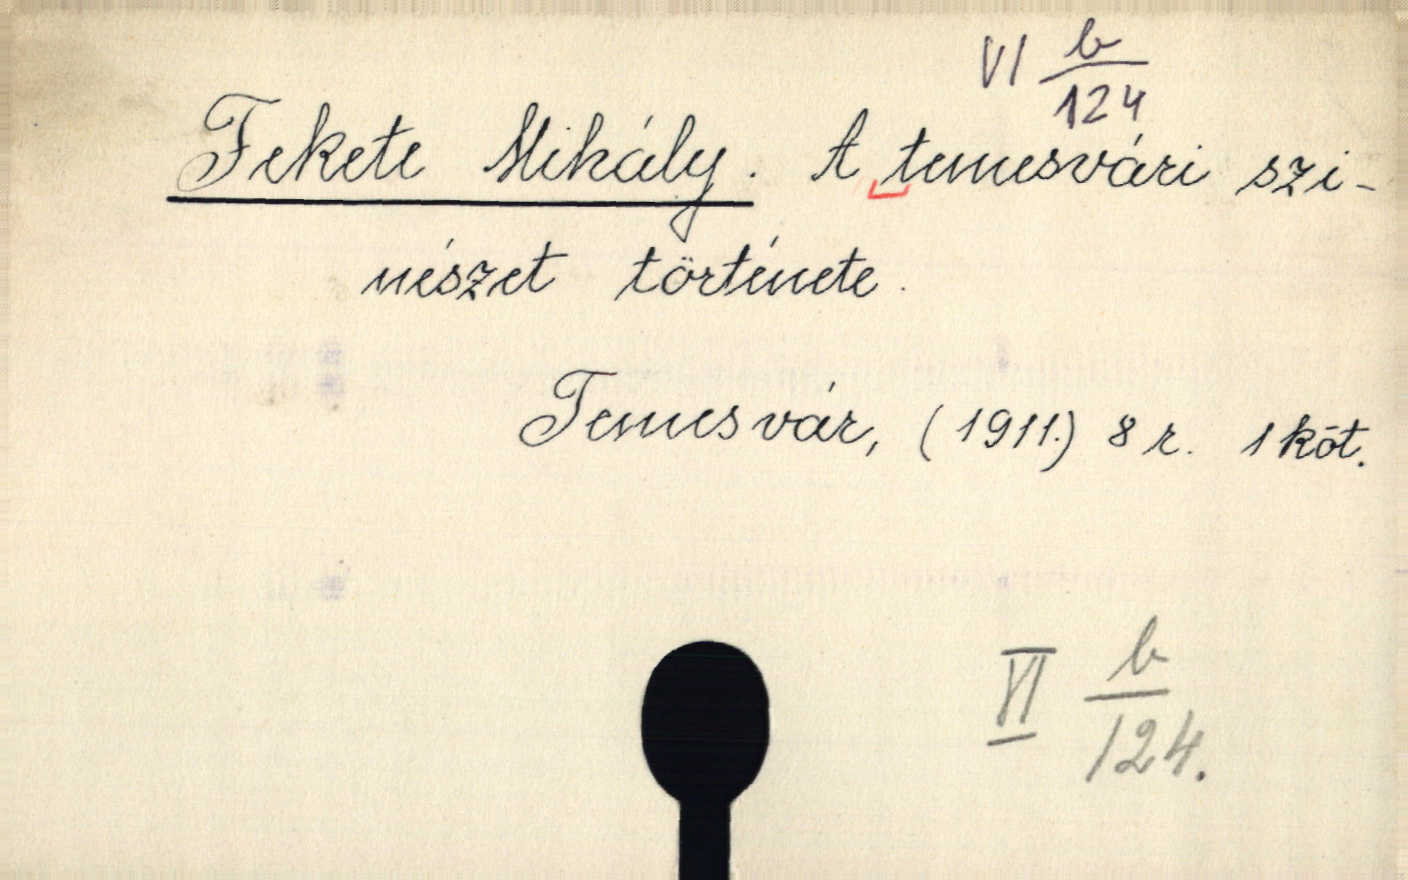 VI b/124
Fekete Mihály. A temesvári szi-
nészet története.
Temesvár, (1911.) 8 r. 1 köt.
VI b/124.